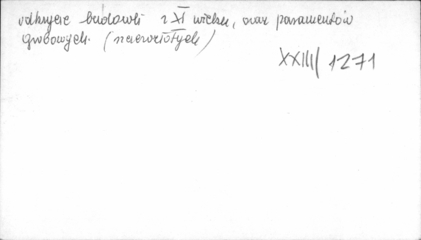 odkrycie budowli z XI wieku, oraz paramentów
grobowych. (
XXIII/1271